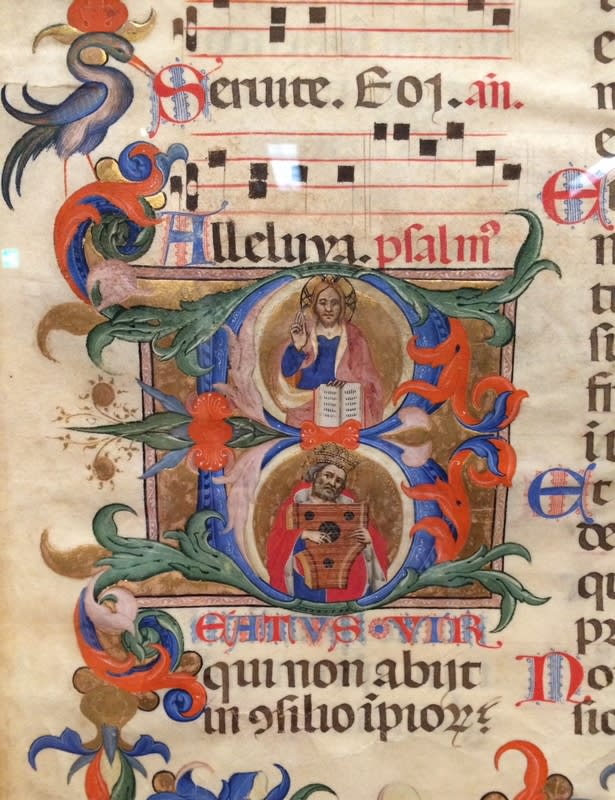 Seruite. Eoı. añ.
Alleluya. psalmꝰ
BEATVS VIR
qui non abijt
in ꝯsilio īpioꝝ:
Et